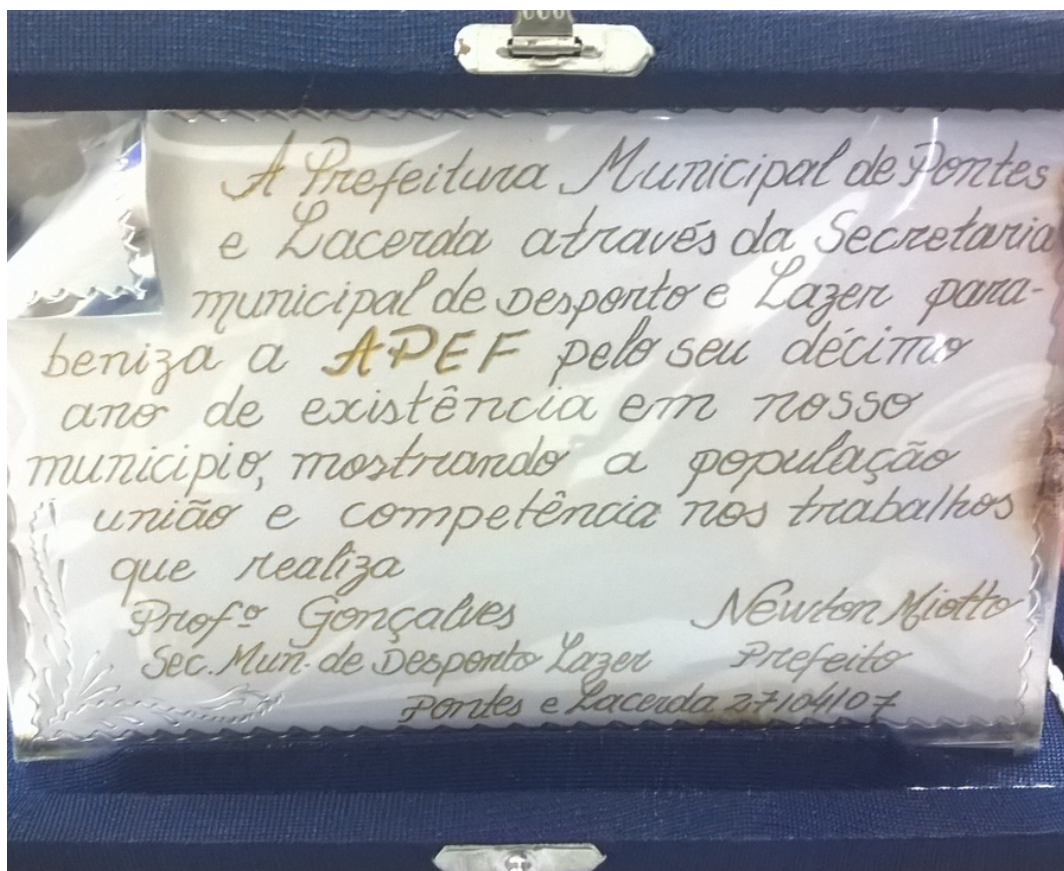 A Prefeitura Municipal de Pontes
e Lacerda através da Secretaria
municipal de Desporto e Lazer para-
beniza a APEF pelo seu décimo
ano de existência em nosso
municipio, mostrando a população
união e competência nos trabalhos
que realiza
Profº Gonçalves Newton Miotto
Sec. Mun. de Desporto Lazer Prefeito
Pontes e Lacerda 27/04/07